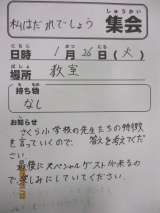 しゅうかい
私はだれでしょう 集会
にちじ がつ にち か
日時 1月26日(火)
ばしょ きょうしつ
場所 教室
も もの
持ち物
なし
お知らせ
さくら小学校の先生たちの特徴
を言っていくので、答えを考えてく
ださい。
最後にスペシャルゲストが来るの
で、楽しみにしていてください。